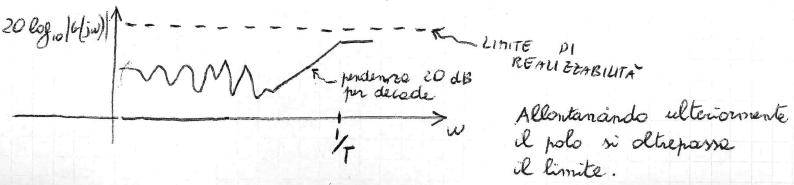 20 log₁₀|G(jω)|
LIMITE DI
REALIZZABILITÀ
pendenza 20 dB
per decade
ω
1/T
Allontanando ulteriormente
il polo si oltrepassa
il limite.